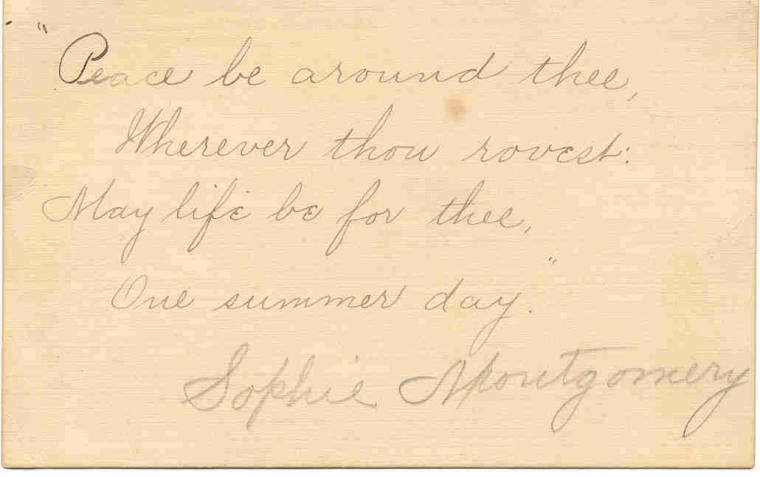 "Peace be around thee,
Wherever thou rovest:
May life be for thee,
One summer day."
Sophie Montgomery